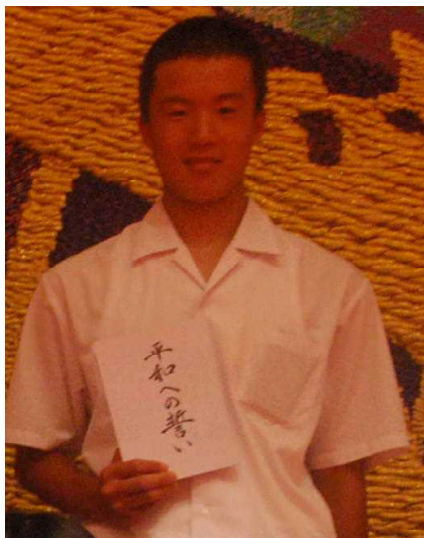 平和への誓い